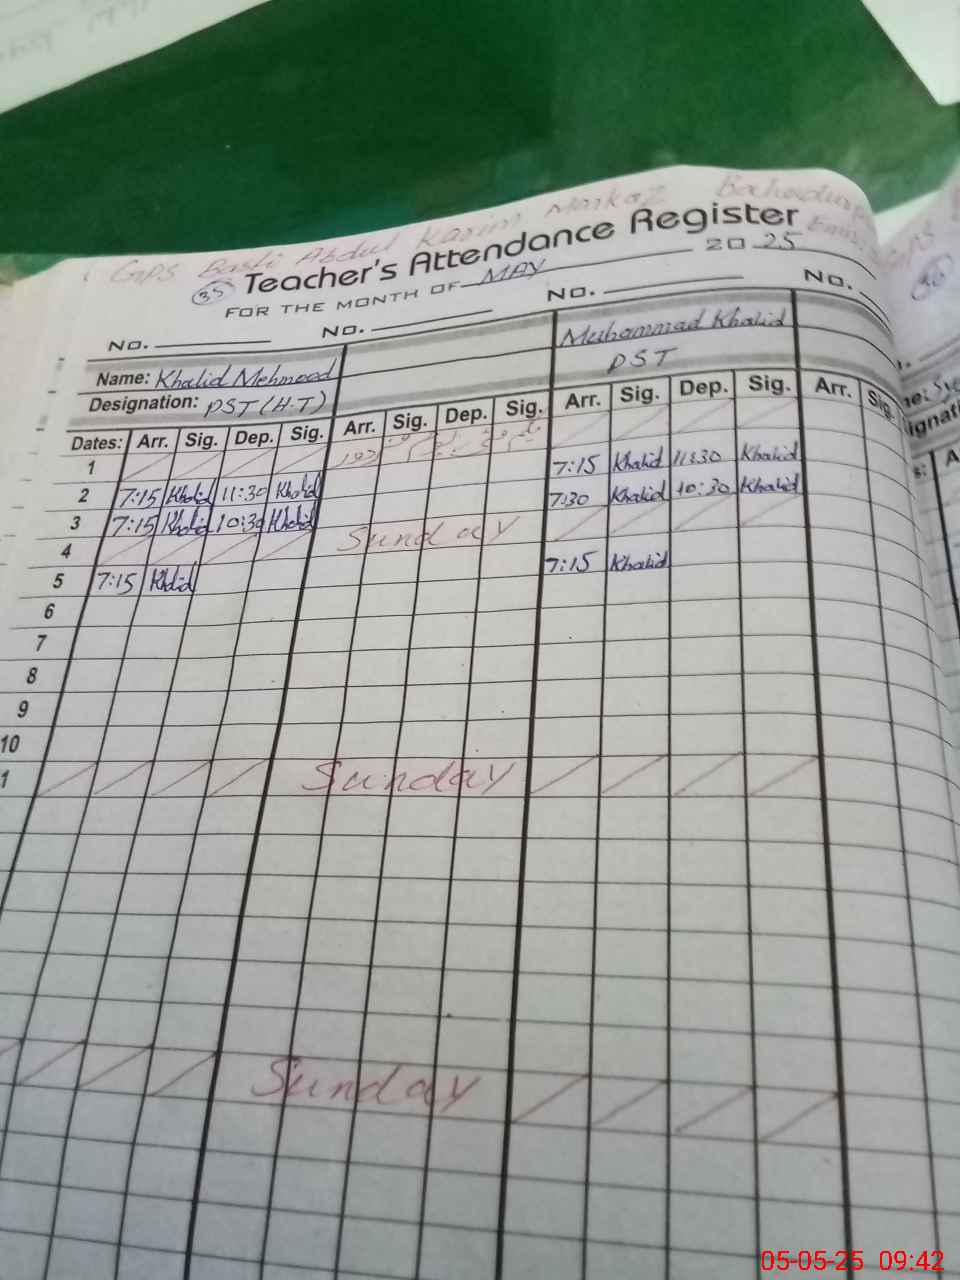 GPS Basti Abdul Karim Markaz
Teacher's Attendance Register
35 FOR THE MONTH OF MAY 2025
No. No. No. No.
Name: Khalid Mehmood Muhammad Khalid
Designation: PST (H.T) PST
Dates: Arr. Sig. Dep. Sig. Arr. Sig. Dep. Sig. Arr. Sig. Dep. Sig. Arr. Sig.
1
2 7:15 Khalid 11:30 Khalid 7:15 Khalid 11:30 Khalid
3 7:15 Khalid 10:30 Khalid 7:30 Khalid 10:30 Khalid
4 Sunday
5 7:15 Khalid 7:15 Khalid
6
7
8
9
10
1 Sunday
Sunday
05-05-25 09:42